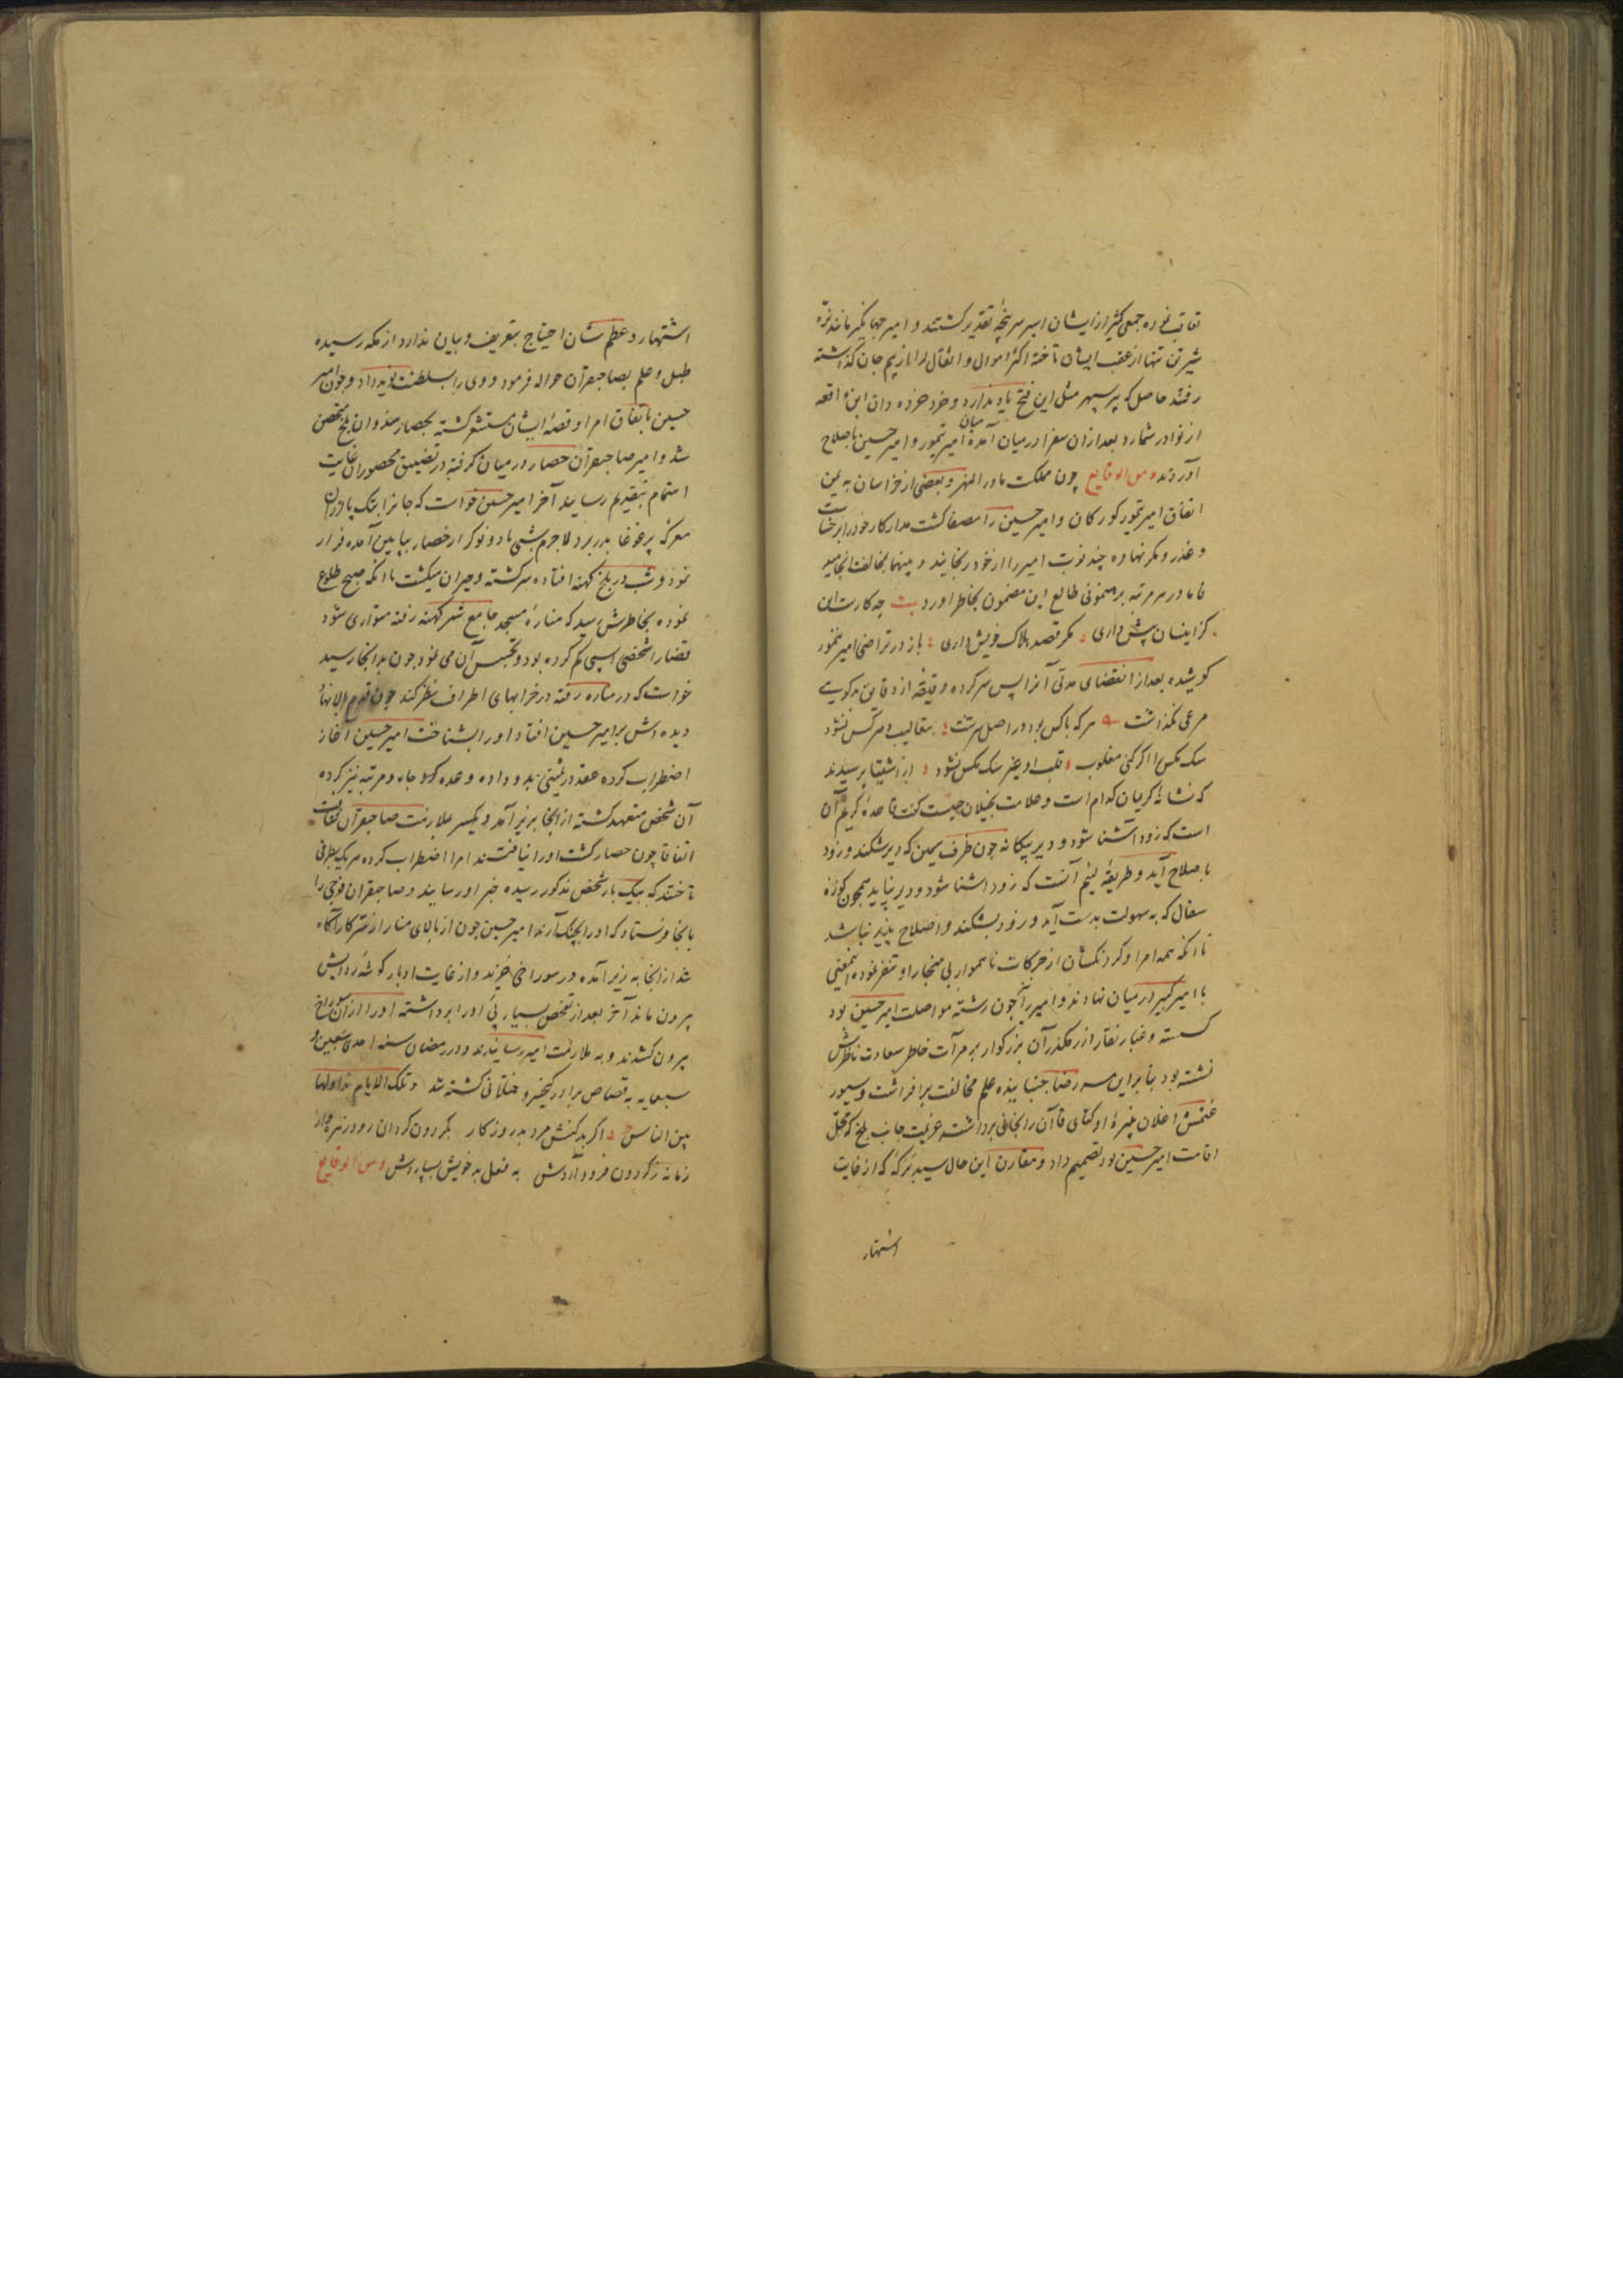 تعاقب نموده جمعی کثیر از ایشان اسیر سرپنجهٔ تقدیر کشتند و امیر جهانکیر مانند نره
شیر تن تنها از عقب ایشان تاخته اکثر اموال و اثقال را از بیم جان کذاشته
رفتند حاصل که پیر سپهر مثل این فتح یاد ندارد و خرد خرده دان این واقعه
از نوادر شمارد بعد از ان سفرا درمیان آمده میان امیر تیمور و امیر حسین باصلاح
آوردند و من الوقایع چون مملکت ماورالنهر و بعضی از خراسان به یمن
اتفاق امیر تیمور کورکان و امیر حسین را مصفا کشت مدار کار خود را بر خباثت
و غدر و مکر نهاده چند نوبت امیر را از خود رنجانید و مهم بمخالفت انجامید
تا در هر مرتبه برهنمونی طالع این مضمون بخاطر آورد بیت چه کارست این
کزاینسان پیش داری مکر قصد هلاک خویش داری باز در تراضی امیر تیمور
کوشیده بعد از انقضای مدتی آنرا پس سر کرده دقیقه از دقایق بدکویی
مرعی نکذاشت هر که ناکس بود در اصل سرشت بتقالیب دهر کس نشود
سک مکس را اکر کنی مقلوب قلب او غیر سک مکس نشود از شقیق پرسیدند
که نشانهٔ کریمان کدام است و علامت بخیلان چیست کفت قاعدهٔ کریم آن
است که زود آشنا شود و دیر بیکانه چون ظرف سیمین که دیر شکند و زود
باصلاح آید و طریقه لئیم آنست که زود آشنا شود و دیر نپاید همچون کوزهٔ
سفال که به سهولت بدست آید و زود بشکند و اصلاح پذیر نباشد
تا انکه همه امرا و کردنکشان از حرکات ناهموار بی هنجار او متنفر نموده اینمعنی
با امیر کبیر درمیان نهادند و امیر را نیز چون رشته مواصلت امیر حسین بود
کسسته و غبار نقار از رهکذر آن بزرکوار بر مرآت خاطر سعادت ناظرش
نشسته بود بنا بر این سر رضا جنبانیده علم مخالفت برافراشت و سیور
غتمش اغلان نبیرهٔ اوکتای قاآن را بخانی برداشته عزیمت جانب بلخ که محل
اقامت امیر حسین بود تصمیم داد و مقارن این حال سید برکه که از غایت
اشتهار
اشتهار و عظم شان احتیاج بتعریف و بیان ندارد از مکه رسیده
طبل و علم بصاحبقران حواله فرمود و وی را بسلطنت نوید داد و چون امیر
حسین باتفاق امرا و قصهٔ ایشان مستشعر کشته بحصار هندوان بلخ متحصن
شد و امیر صاحبقران حصار درمیان کرفته در تضییق محصوران غایت
اهتمام بتقدیم رسانید آخر امیر حسین خواست که جان را بتک پا از ان
معرکه پر غوغا بدر برد لاجرم شبی با دو نوکر از حصار بپایین آمده فرار
نمود و شب در بلخ کهنه افتاده سرکشته و حیران میکشت تا انکه صبح طلوع
نموده بخاطرش رسید که منارهٔ مسجد جامع شهر کهنه رفته متواری شود
قضا را شخصی اسبی کم کرده بود و تجسس آن می نمود چون بدانجا رسید
خواست که در مناره رفته در خرابهای اطراف نظر کند چون قدم بالا نهاد
دیده اش بر امیر حسین افتاد او را بشناخت امیر حسین آغاز
اضطراب کرده عقد درثمینی بدو داده وعده علو جاه و مرتبه نیز کرده
آن شخص متعهد کشته از انجا بزیر آمد و یکسر بملازمت صاحبقران شتافت
اتفاقا چون حصار کشت او را نیافتند امرا اضطراب کرده هر یک بطرفی
تاختند که بیک بار شخص مذکور رسیده خبر او رسانید و صاحبقران فوجی را
بانجا فرستاد که او را بچنک آرند امیر حسین چون از بالای منار از سر کار آکاه
شد از انجا به زیر آمده در سوراخی خزید و از غایت ادبار کوشهٔ ردایش
بیرون ماند آخر بعد از تفحص بسیار پی او را برداشته او را از ان سوراخ
بیرون کشیدند و به ملازمت امیر رسانیدند و در رمضان سنه احدی سبعین و
سبعمایه به قصاص برادر کیخسرو ختلانی کشته شد و تلک الایام نداولها
بین الناس اکر بد کنش مرد بد روزکار بکردون کردان رود زنهار
زمانه ز کردون فرود آردش به فعل به خویش بسپاردش و من الوقایع